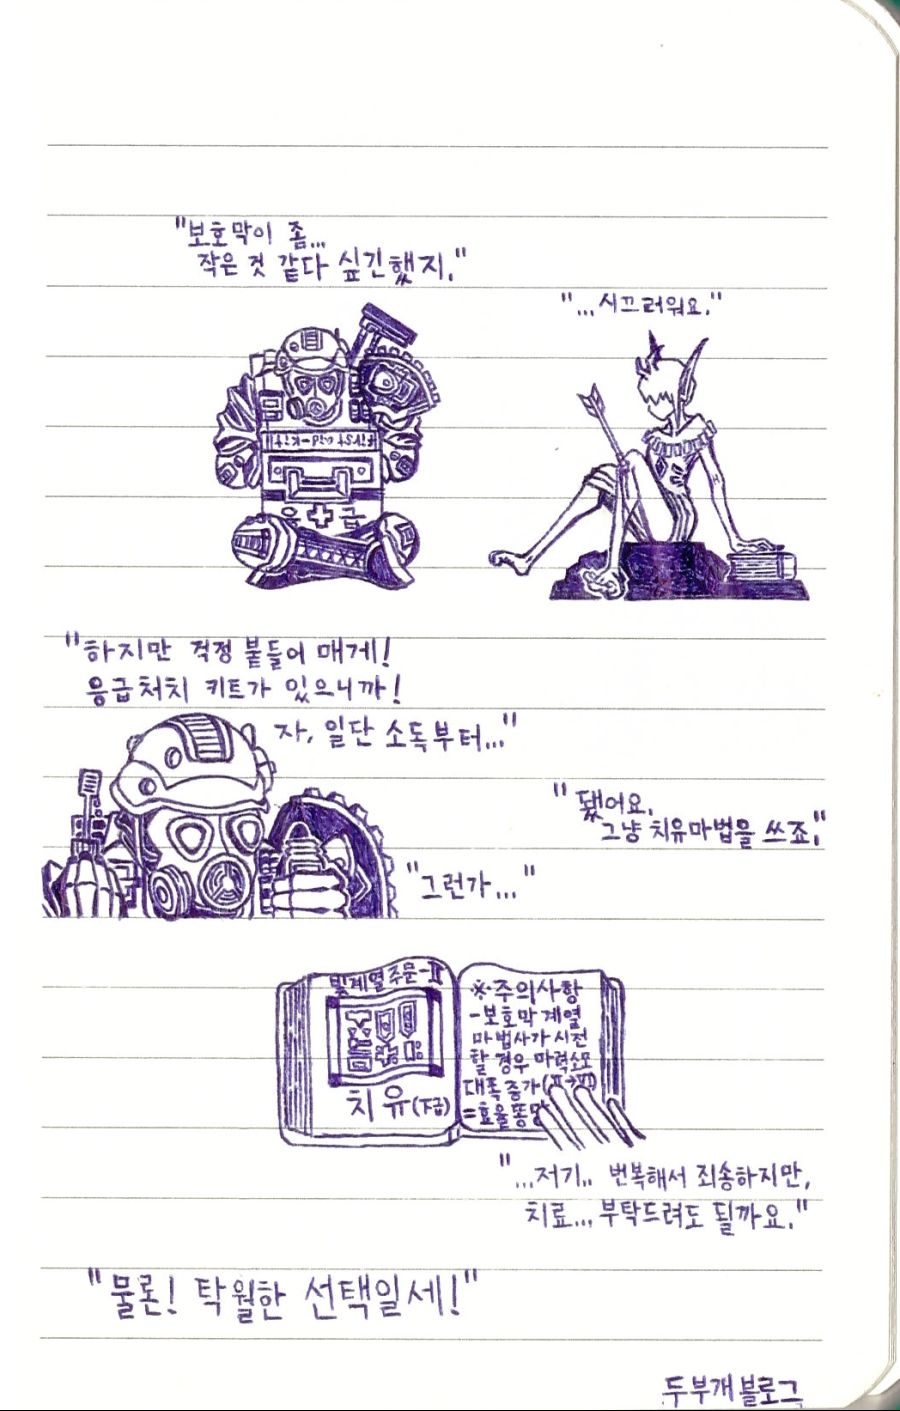 "보호막이 좀...
작은 것 같다 싶긴했지."
"...시끄러워요."
first aid-kit
응급
"하지만 걱정 붙들어 매게!
응급처치 키트가 있으니까!
자, 일단 소독부터..."
"됐어요.
그냥 치유마법을 쓰죠."
"그런가..."
빛계열주문-II
치유(下급)
※주의사항
-보호막 계열
마법사가 시전
할 경우 마력소모
대폭 증가(II→VI)
=효율똥망
"...저기.. 번복해서 죄송하지만,
치료... 부탁드려도 될까요."
"물론! 탁월한 선택일세!"
두부개블로그